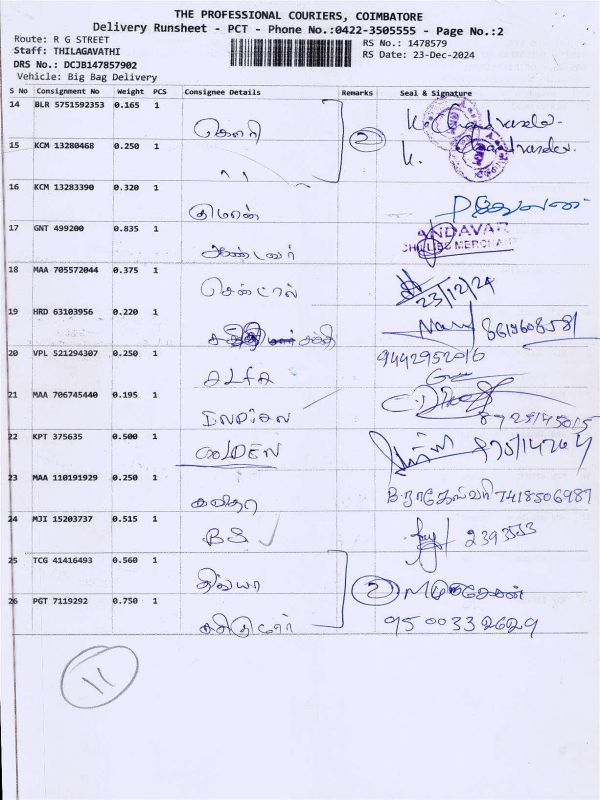 THE PROFESSIONAL COURIERS, COIMBATORE
Delivery Runsheet - PCT - Phone No.:0422-3505555 - Page No.:2
Route: R G STREET
RS No.: 1478579
Staff: THILAGAVATHI
RS Date: 23-Dec-2024
DRS No.: DCJB147857902
Vehicle: Big Bag Delivery
S No Consignment No Weight PCS Consignee Details Remarks Seal & Signature
14 BLR 5751592353 0.165 1 கௌரி 2 K. Chandrasekar
15 KCM 13280468 0.250 1 " K. Chandrasekar
16 KCM 13283390 0.320 1
17 GNT 499200 0.835 1 ANDAVAR
CHILLIES MERCHANT
18 MAA 705572044 0.375 1 சென்ட்ரல் 23/12/24
19 HRD 63103956 0.220 1 சக்தி
20 VPL 521294307 0.250 1 ALFA 9442952016
21 MAA 706745440 0.195 1 INDIAN
22 KPT 375635 0.500 1 GOLDEN
23 MAA 110191929 0.250 1 கவிதா B. நாகேஸ்வரி 7418506987
24 MJI 15203737 0.515 1 BS
25 TCG 41416493 0.560 1 திவ்யா 2
26 PGT 7119292 0.750 1 சசிகுமார் 9500332629
11